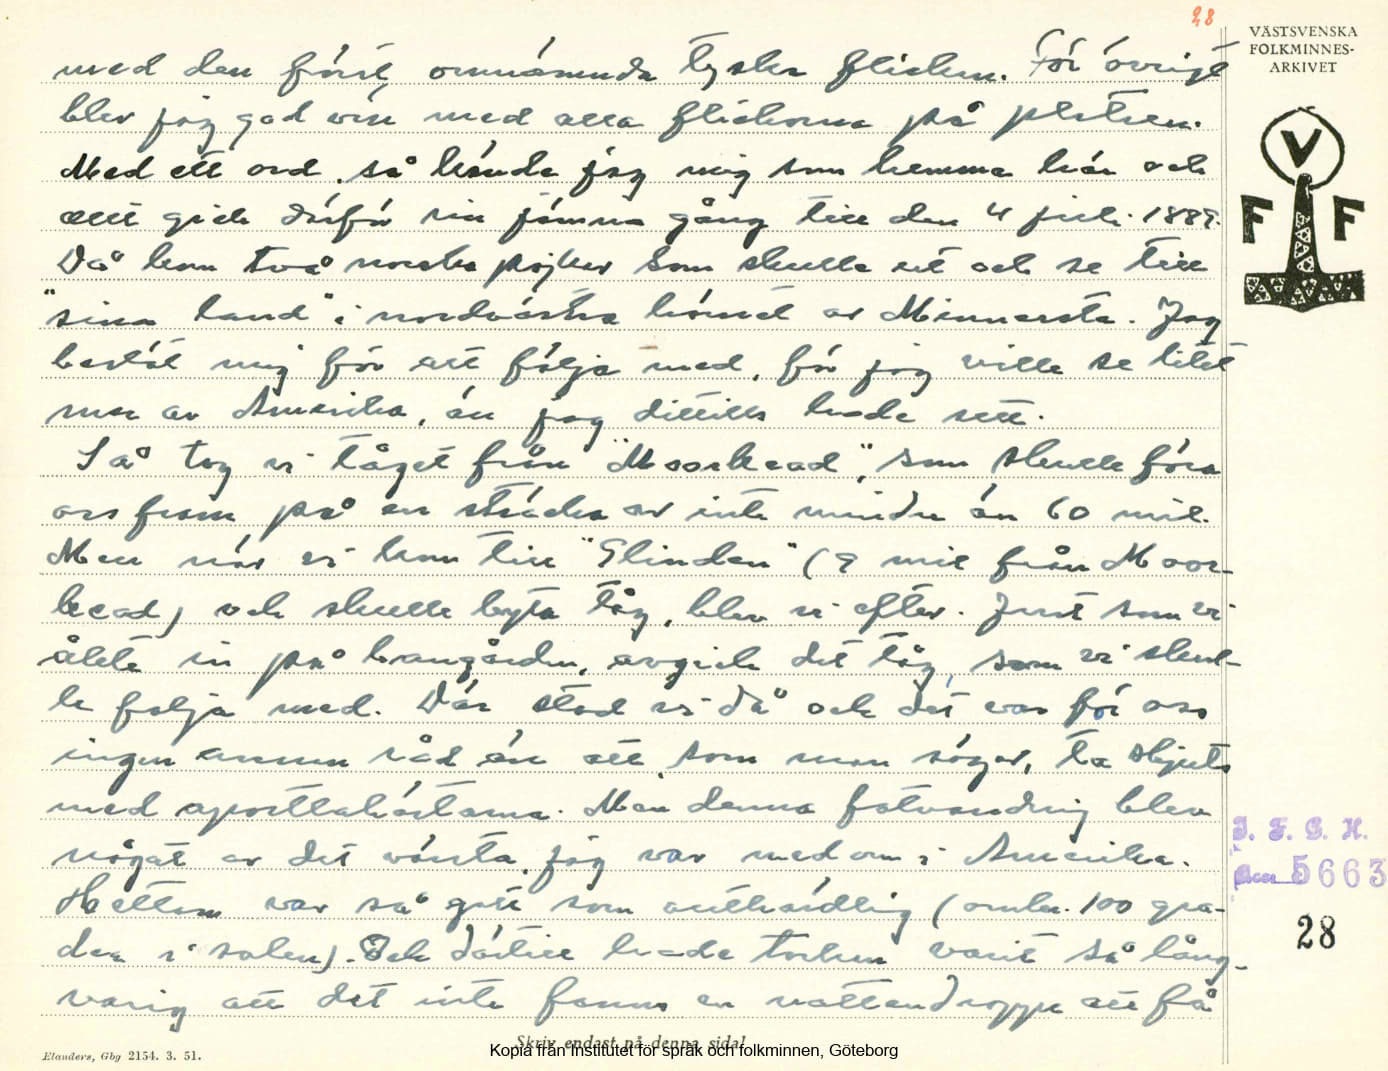 28
VÄSTSVENSKA
FOLKMINNES-
ARKIVET
med den först omnämnda tyska flickan. För övrigt
blev jag god vän med alla flickorna på platsen.
Med ett ord, så kände jag mig som hemma här och
allt gick därför sin jämna gång till den 4 juli 1889.
Då kom två norska pojkar som skulle ut och se till
"sina land" i nordvästra hörnet av Minnersta. Jag
beslöt mig för att följa med, för jag ville se litet
mer av Amerika, än jag dittills hade sett.
Så tog vi tåget från "Moorhead", som skulle föra
oss fram på en sträcka av inte mindre än 60 mil.
Men när vi kom till "Glinden" (9 mil från Moor-
head) och skulle byta tåg, blev vi efter. Just som vi
åkte in på bangården, avgick det tåg, som vi skul-
le följa med. Där stod vi då och det var för oss
ingen annan råd än att, som man säger, ta skjuts
med apostlahästarna. Men denna fotvandring blev
något av det värsta, jag var med om i Amerika.
Hettan var så gott som outhärdlig (omkr. 100 gra-
der i solen). Och därtill hade torkan varit så lång-
varig att det inte fanns en vattendroppe att få
V
F F
I. F. G. H.
Acc 5663
28
Skriv endast på denna sida!
Elanders, Gbg 2154. 3. 51.
Kopia från Institutet för språk och folkminnen, Göteborg